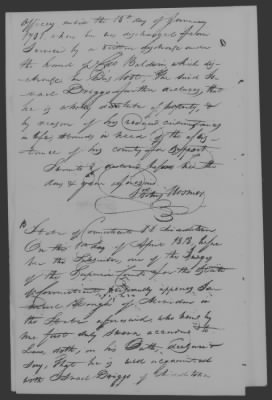 officers untill the 15th day of January
1785 when he was discharged from
Service by a written discharge under
the hand of Col Baldwin which dis-
charge is Lost, The said Is-
rael Driggs further declares, that
he is wholly destitute of property &
by reason of his reduced circumstances
in life, stands in need of the assis-
tance of his country for support.
Sworn & declared before me the
day & year
State of Connecticut SS Middletown
On the day of April 1818, before
me the Subscriber, one of the Judges
of the Superior Court for the State
of Connecticut, personally appears
of Meriden in
the State aforesaid who being by
me first duly sworn according to
Law, doth, on his Oath, declare &
say, that he is well acquainted
with Israel Driggs of Middletown